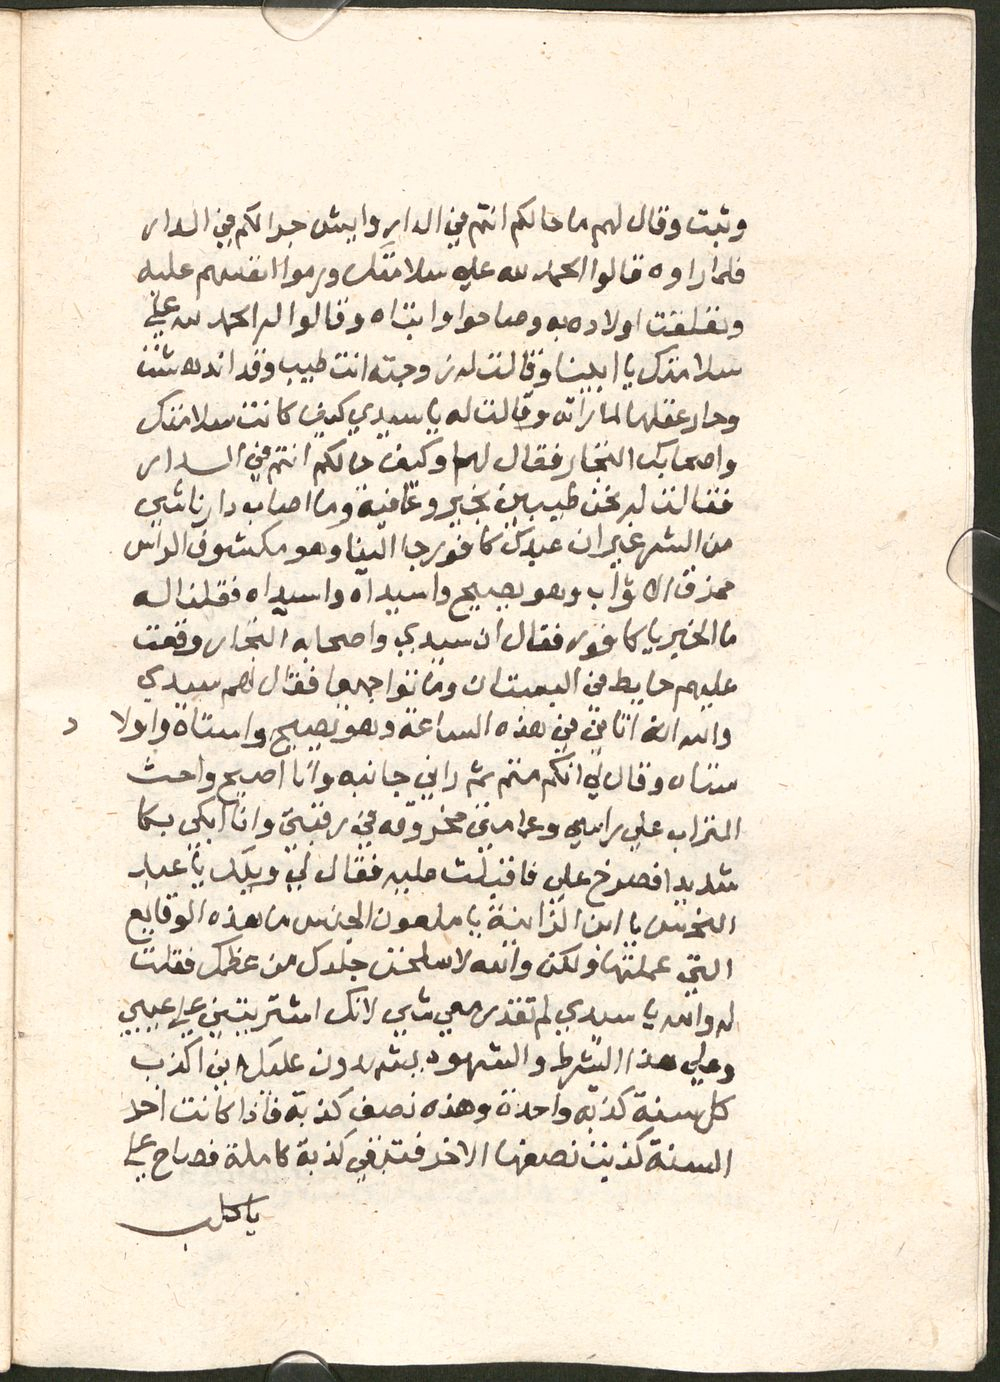 وثبت وقال لهم ما حالكم انتم في الدار وايش جرالكم في الدار
فلما راوه قالوا الحمد لله علي سلامتك ورموا انفسهم عليه
وتعلقت اولاده به وصاحوا وابتاه وقالوا له الحمد لله علي
سلامتك يا ابينا وقالت له زوجته انت طيب وقد اندهشت
وحار عقلها لما راته وقالت له يا سيدي كيف كانت سلامتك
واصحابك التجار فقال لها وكيف حالكم انتم في الدار
فقالت له نحن طيبين بخير وعافية وما اصاب دارنا شي
من الشر غير ان عبدك كافور جا الينا وهو مكشوف الراس
ممزق الاثواب وهو يصيح واسيداه واسيداه فقلنا له
ما الخبر يا كافور فقال ان سيدي واصحابه التجار وقعت
عليهم حايط في البستان وماتوا جميعا فقال لهم سيدي
والله انه اتاني في هذه الساعة وهو يصيح واستاه واولاد
ستاه وقال لي انكم متم ثم راني جانبه وانا اصيح واحث
التراب علي راسي وعمامتي مخروقه في رقبتي وانا ابكي بكا
شديد افصرخ علي فاقبلت عليه فقال لي ويلك يا عبد
النحس يا ابن الزانية يا ملعون الجنس ما هذه الوقايع
التي عملتها ولكن والله لاسلخن جلدك من عظمك فقلت
له والله يا سيدي لم تقدر معي شي لانك اشتريتني علي عيبي
وعلي هذا الشرط والشهود يشهدون عليك اني اكذب
كل سنة كذبة واحدة وهذه نصف كذبة فاذا كانت اخر
السنة كذبت نصفها الاخر فتبقي كذبة كاملة فصاح علي
يا كلب